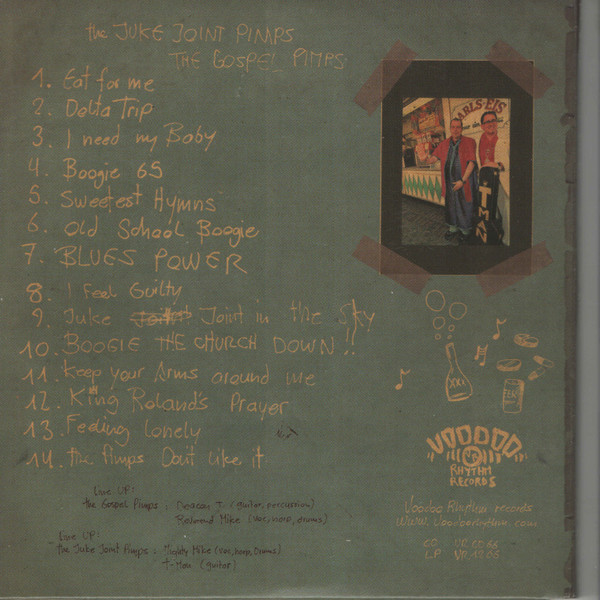 the JUKE JOINT PIMPS
THE GOSPEL PIMPS
1. Eat for me
2. Delta Trip
3. I need my Baby
4. Boogie 65
5. Sweetest Hymns
6. Old School Boogie
7. BLUES POWER
8. I Feel Guilty
9. Juke Joint in the Sky
10. BOOGIE THE CHURCH DOWN!!
11. Keep your Arms around me
12. King Roland's Prayer
13. Feeling lonely
14. the Pimps Don't like it
Line UP:
the Gospel Pimps: Deacon T. (guitar, percussion)
Reverend Mike (voc, harp, drums)
Line UP:
the Juke Joint Pimps: Mighty Mike (voc, harp, Drums)
T-Man (guitar)
ARLS-EIS
T MAN
XXX
VOODOO
RHYTHM
RECORDS
Voodoo Rhythm records
www.Voodoorhythm.com
CD VR CD 65
LP VR 1265